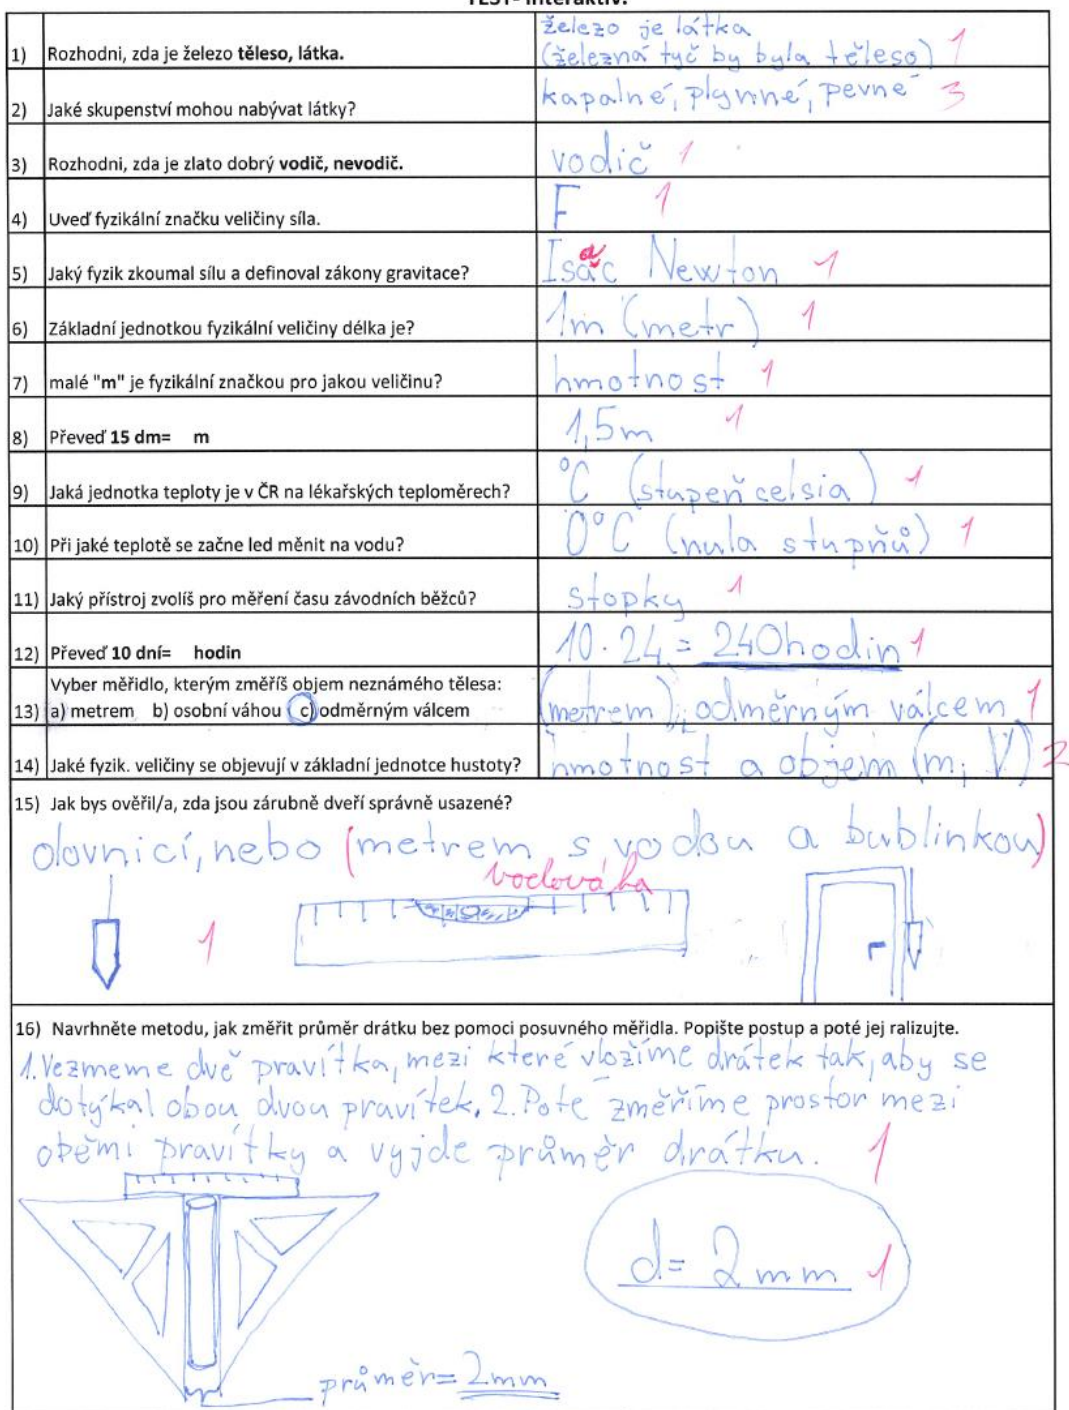 TEST- interaktiv.
1) Rozhodni, zda je železo těleso, látka.
železo je látka
(železná tyč by byla těleso) 1
2) Jaké skupenství mohou nabývat látky?
kapalné, plynné, pevné 3
3) Rozhodni, zda je zlato dobrý vodič, nevodič.
vodič 1
4) Uveď fyzikální značku veličiny síla.
F 1
5) Jaký fyzik zkoumal sílu a definoval zákony gravitace?
Isac Newton 1
6) Základní jednotkou fyzikální veličiny délka je?
1m (metr) 1
7) malé "m" je fyzikální značkou pro jakou veličinu?
hmotnost 1
8) Převeď 15 dm= m
1,5m 1
9) Jaká jednotka teploty je v ČR na lékařských teploměrech?
°C (stupeň celsia) 1
10) Při jaké teplotě se začne led měnit na vodu?
0°C (nula stupňů) 1
11) Jaký přístroj zvolíš pro měření času závodních běžců?
stopky 1
12) Převeď 10 dní= hodin
10 · 24 = 240hodin 1
Vyber měřidlo, kterým změříš objem neznámého tělesa:
13) a) metrem b) osobní váhou c) odměrným válcem
(metrem), odměrným válcem 1
14) Jaké fyzik. veličiny se objevují v základní jednotce hustoty?
hmotnost a objem (m; V) 2
15) Jak bys ověřil/a, zda jsou zárubně dveří správně usazené?
olovnicí, nebo (metrem s vodou a bublinkou)
vodováha
1
16) Navrhněte metodu, jak změřit průměr drátku bez pomoci posuvného měřidla. Popište postup a poté jej ralizujte.
1. Vezmeme dvě pravítka, mezi které vložíme drátek tak, aby se
dotýkal obou dvou pravítek. 2. Poté změříme prostor mezi
oběmi pravítky a vyjde průměr drátku. 1
d= 2mm 1
průměr= 2mm